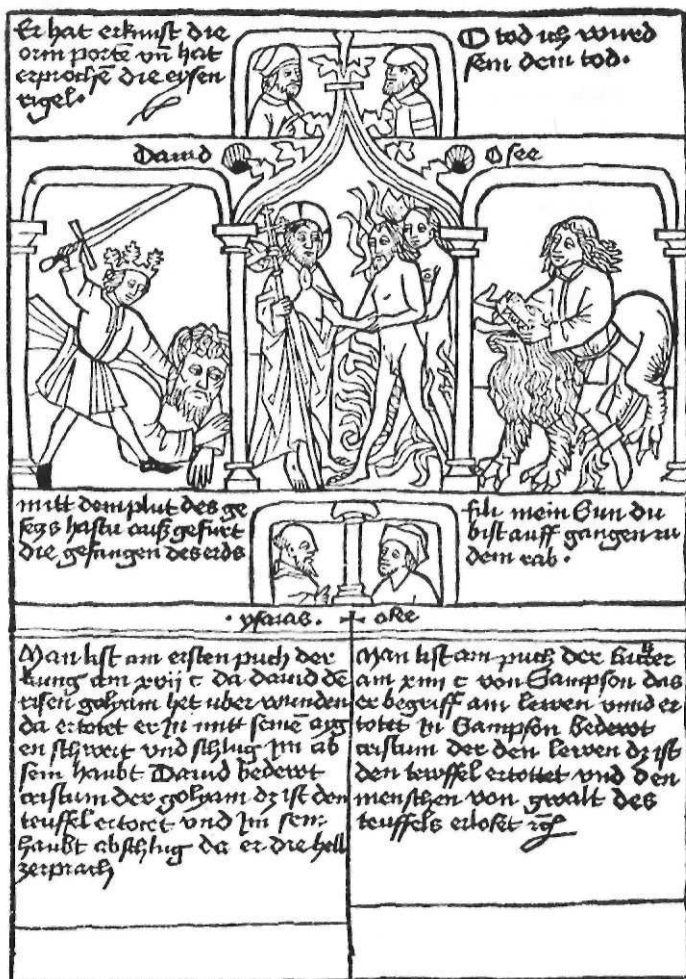 Er hat erknist die
orin portē vn̄ hat
erprochē die eysen
rigel.
O tod ich wurd
sein dem tod.
Dauid
Osee
mitt dem plut des ge
segs hastu auß gefurt
die gefangen des erds
fili mein Sun du
bist auff gangen zu
dem rab.
. ysaias. + oſee
Man list am ersten puch der
kung am xvij c da dauid dē
risen golyam het uber wunden
da ertotet er In mitt seinē ayg
en schwert vnd schlug Im ab
sein haubt Dauid bedewt
cristum der golyam dz ist den
teuffel ertotet vnd Im sein
haubt abschlug da er die hell
zerprach
Man list am puch der
am xiiii c von Sampson das
er begriff ain lewen vnnd er
totet In Sampson bedewt
cristum der den lewen dz ist
den tewffel ertottet vnd den
menschen von gwalt des
teuffels erloset